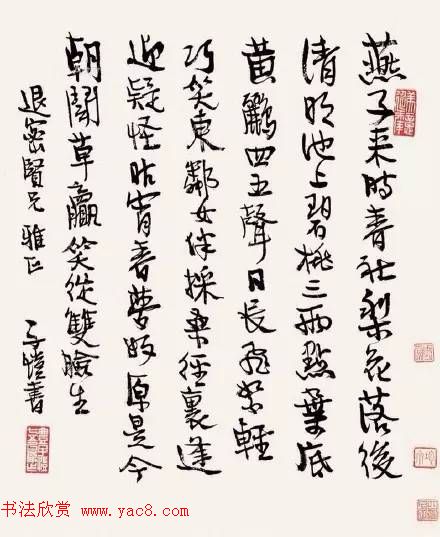 燕子来時春社梨花落後
清明池上碧桃三两點葉底
黄鸝四五聲日長飛絮輕
巧笑東鄰女伴採桑徑裏逢
迎疑怪昨宵春夢好原是今
朝鬭草贏笑從雙臉生
退密賢兄雅正 子愷書
书法欣赏 www.yac8.com